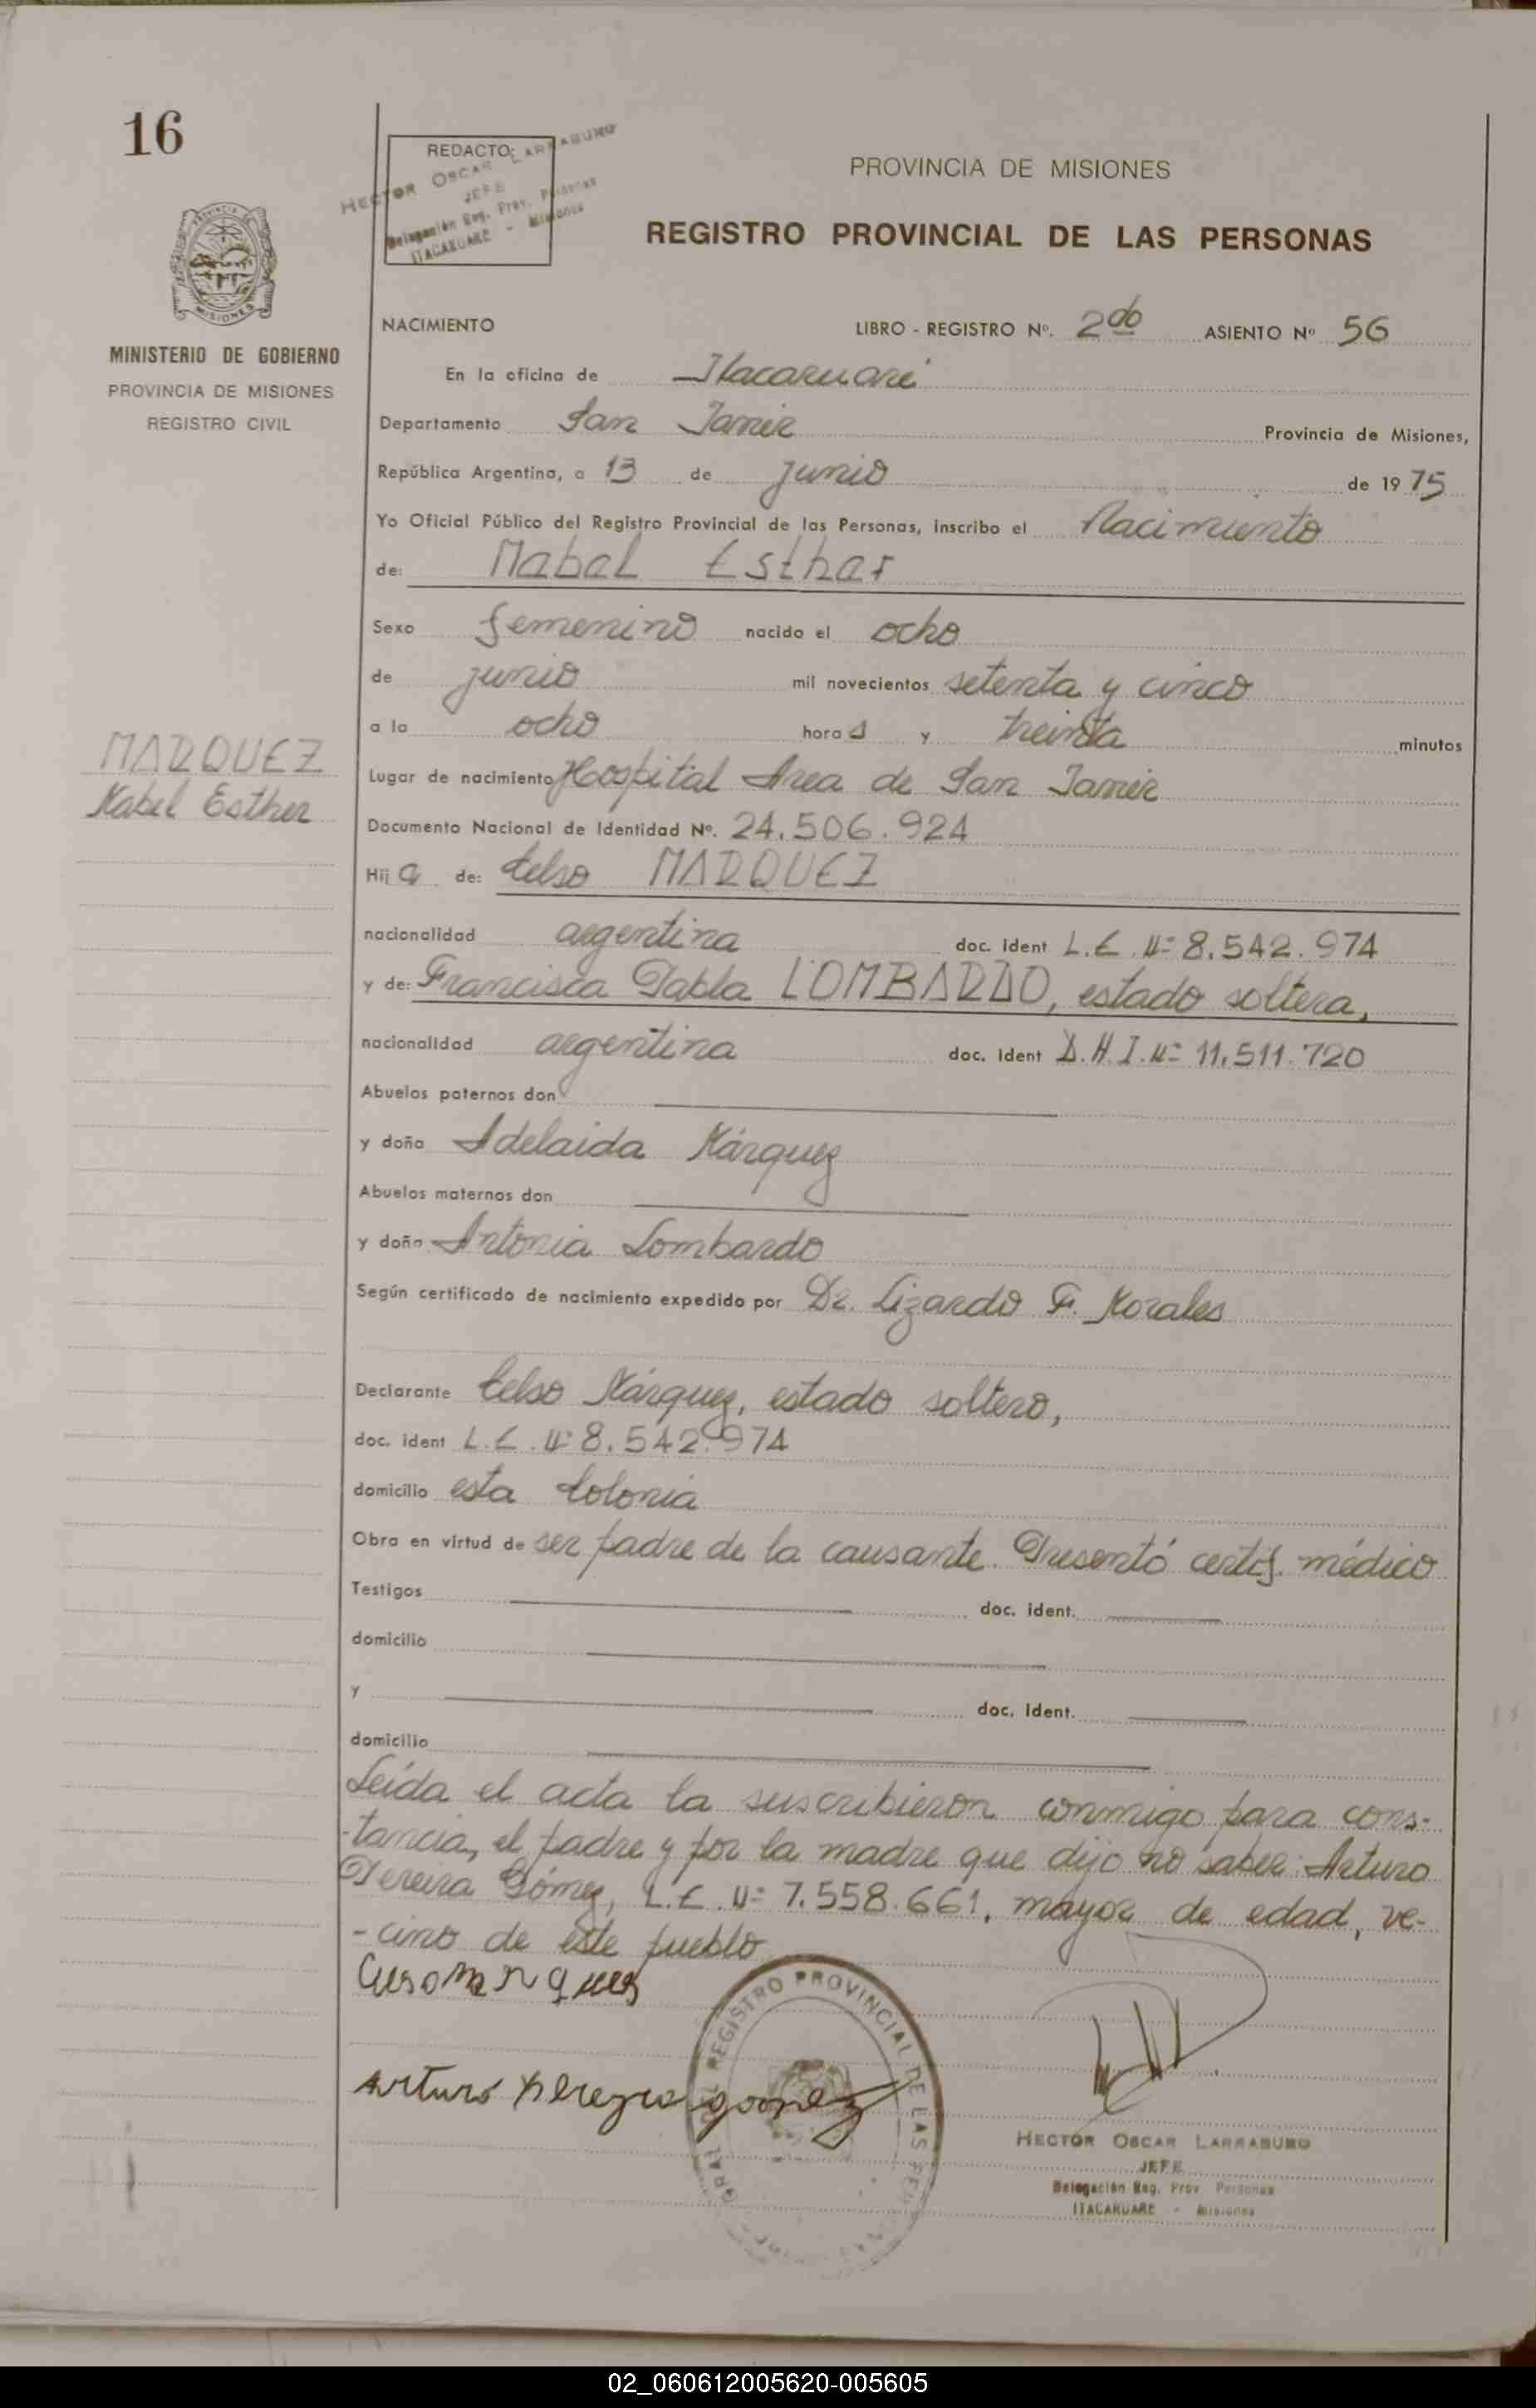 16
REDACTO:
HECTOR OSCAR LARRABURO
JEFE
Delegación Reg. Prov. Personas
ITACARUARE - Misiones
PROVINCIA DE MISIONES
REGISTRO PROVINCIAL DE LAS PERSONAS
PROVINCIA DE
MISIONES
MINISTERIO DE GOBIERNO
PROVINCIA DE MISIONES
REGISTRO CIVIL
NACIMIENTO LIBRO - REGISTRO Nº. 2do ASIENTO Nº 56
En la oficina de Itacaruaré
Departamento San Javier Provincia de Misiones,
República Argentina, a 13 de junio de 1975
Yo Oficial Público del Registro Provincial de las Personas, inscribo el Nacimiento
de: Mabel Esther
Sexo femenino nacido el ocho
de junio mil novecientos setenta y cinco
a la ocho horas y treinta minutos
MARQUEZ
Mabel Esther
Lugar de nacimiento Hospital Area de San Javier
Documento Nacional de Identidad Nº. 24.506.924
Hija de: Celso MARQUEZ
nacionalidad argentina doc. ident L.E. Nº 8.542.974
y de: Francisca Pabla LOMBARDO, estado soltera,
nacionalidad argentina doc. ident D.N.I. Nº 11.511.720
Abuelos paternos don
y doña Adelaida Márquez
Abuelos maternos don
y doña Antonia Lombardo
Según certificado de nacimiento expedido por Dr. Lizardo F. Morales
Declarante Celso Márquez, estado soltero,
doc. ident L.E. Nº 8.542.974
domicilio esta Colonia
Obra en virtud de ser padre de la causante. Presentó certif. médico
Testigos doc. ident.
domicilio
y doc. ident.
domicilio
Leída el acta la suscribieron conmigo para cons-
-tancia, el padre y por la madre que dijo no saber: Arturo
Pereira Gómez, L.E. Nº 7.558.661, mayor de edad, ve-
-cino de este pueblo
Arturo Pereyra gomez
REGISTRO PROVINCIAL DE LAS PER
HECTOR OSCAR LARRABURO
JEFE
Delegación Reg. Prov Personas
ITACARUARE - Misiones
02_060612005620-005605